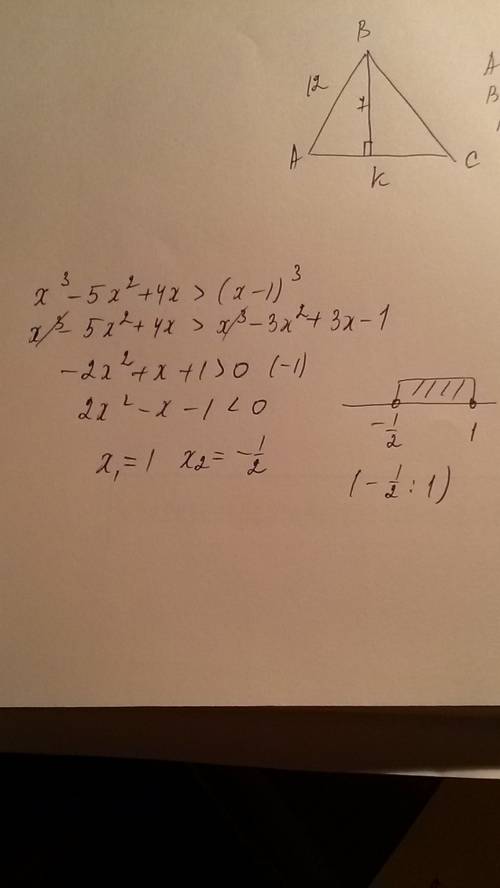 B
12
7
A
K
C
A
B
x³ - 5x² + 4x > (x-1)³
x³ - 5x² + 4x > x³ - 3x² + 3x - 1
-2x² + x + 1 > 0 (-1)
2x² - x - 1 < 0
x₁ = 1 x₂ = -1/2
-1/2 1
(-1/2 : 1)